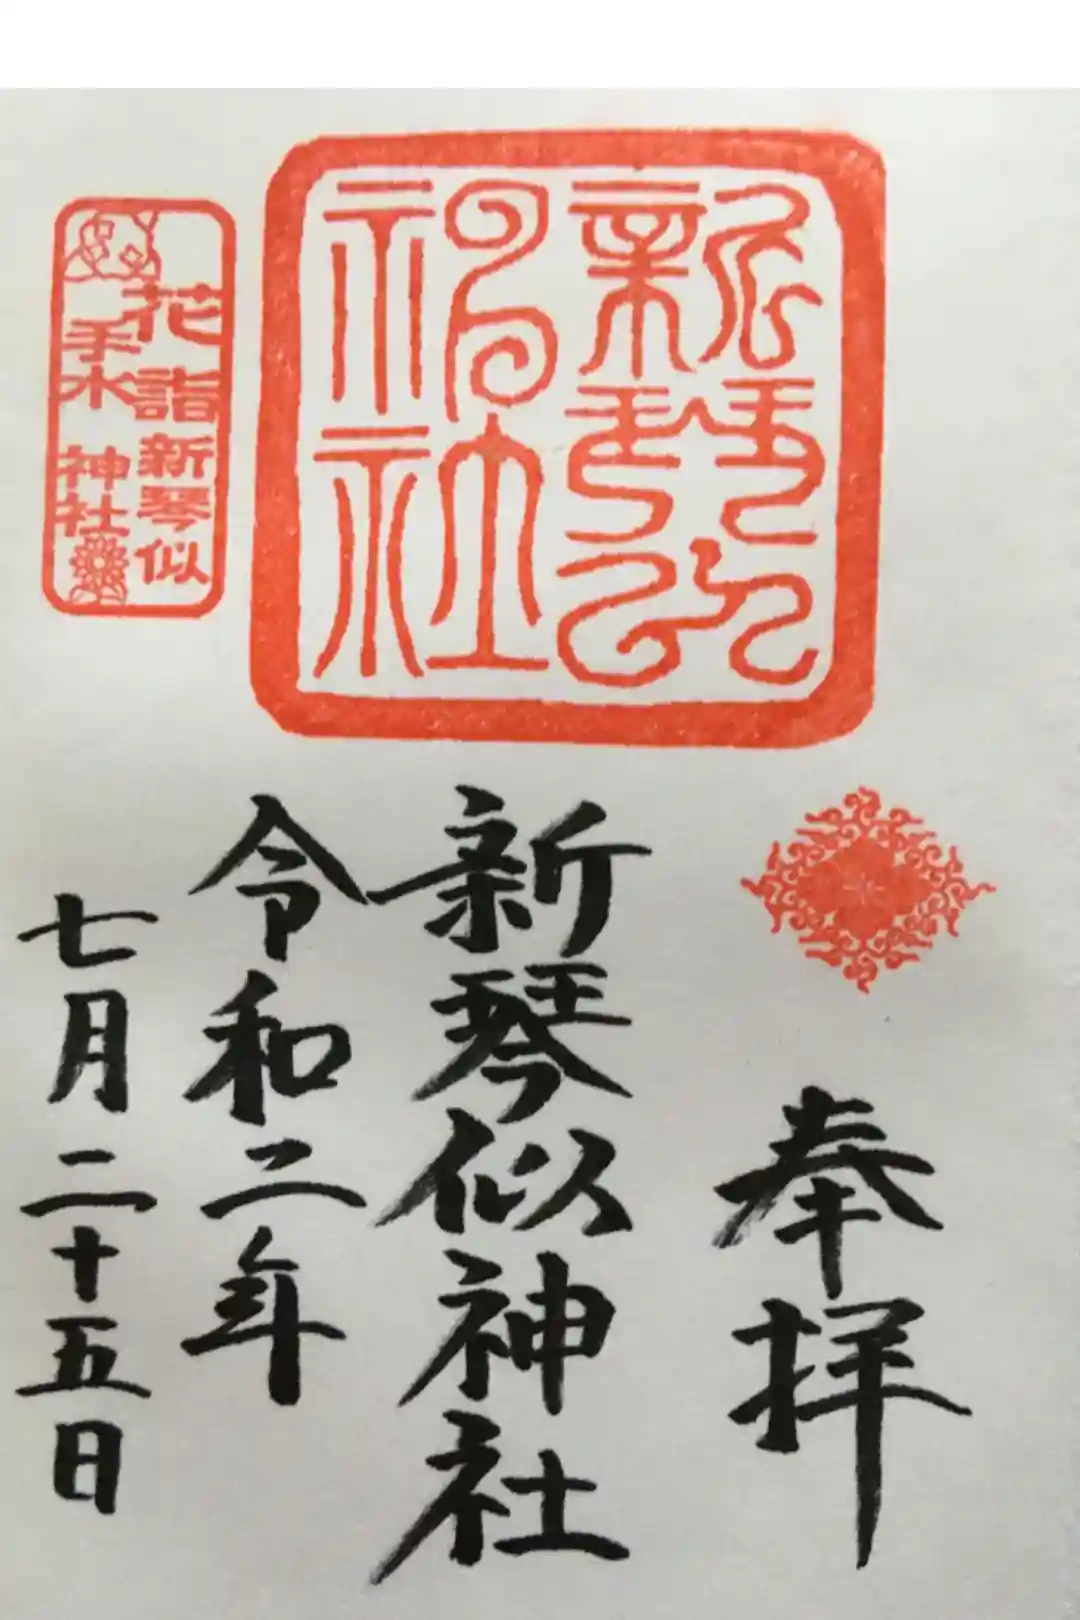 奉拝
新琴似
神社
新琴似神社
令和二年
七月二十五日
花詣 新琴似
手水 神社